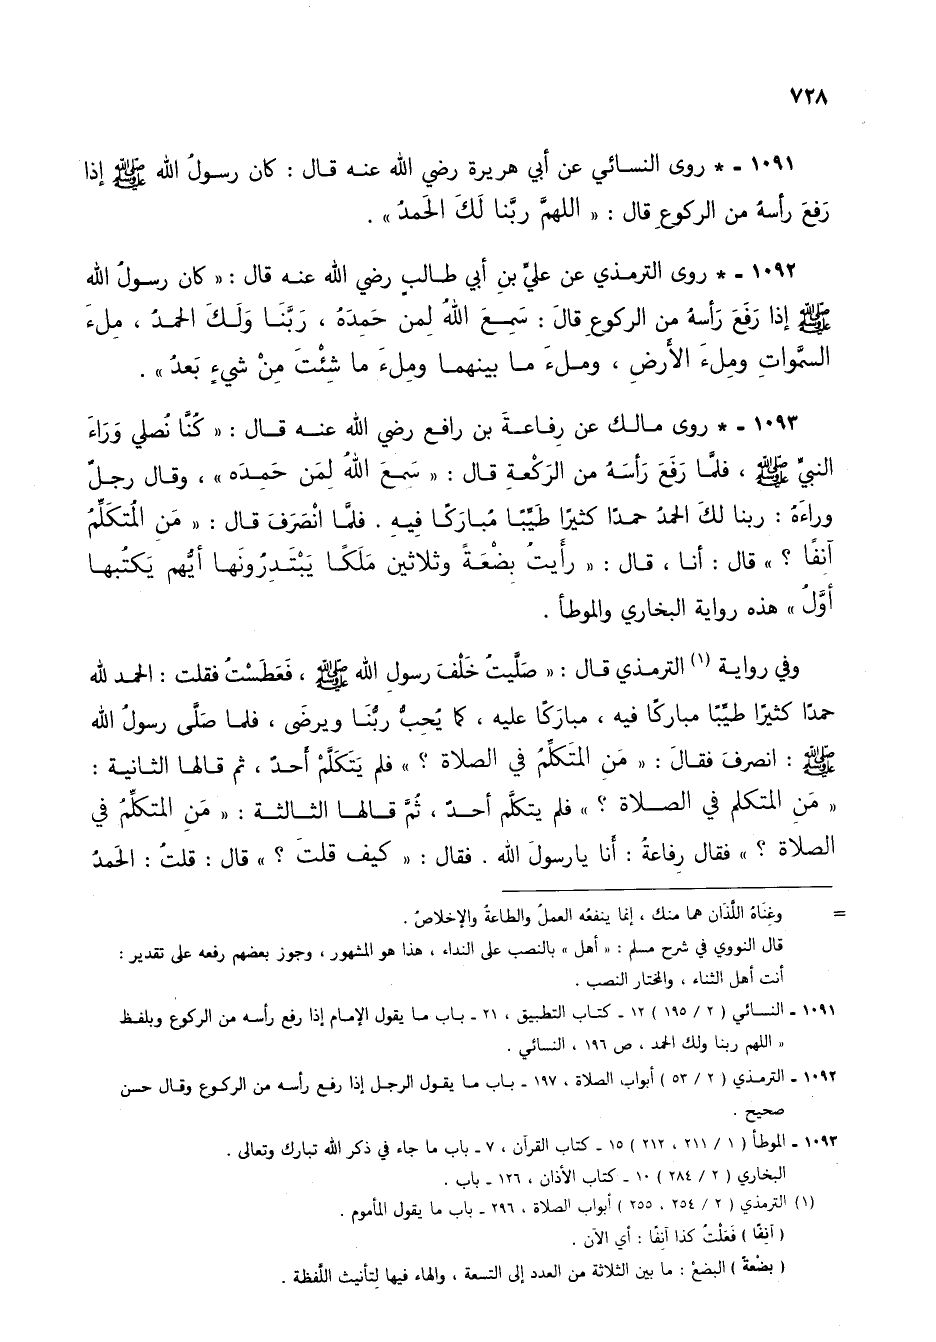 ٧٢٨
١٠٩١ - * روى النسائي عن أبي هريرة رضي الله عنه قال : كان رسولُ الله ﷺ إذا
رَفعَ رأسهُ من الركوعِ قال : « اللهمَّ ربَّنا لَكَ الحَمدُ » .
١٠٩٢ - * روى الترمذي عن عليِّ بنِ أبي طالبٍ رضي الله عنه قال : « كان رسولُ الله
ﷺ إذا رَفَعَ رَأسهُ من الركوعِ قالَ : سَمِعَ اللهُ لمن حَمِدَهُ ، رَبَّنَا وَلَكَ الحمدُ ، مِلءَ
السَّمواتِ ومِلءَ الأَرضِ ، ومِلءَ ما بينهما ومِلءَ ما شِئْتَ مِنْ شيءٍ بَعدُ » .
١٠٩٣ - * روى مالك عن رِفاعةَ بن رافع رضي الله عنه قال : « كُنَّا نُصلي وَرَاءَ
النبيِّ ﷺ ، فلمَّا رَفَعَ رَأسَهُ من الرَكْعةِ قال : « سَمِعَ اللهُ لمَن حَمِدَه » ، وقال رجلٌ
وراءَهُ : ربنا لكَ الحمدُ حمدًا كثيرًا طَيِّبًا مُباركًا فيهِ . فلمَّا انْصَرَفَ قال : « مَنِ المُتكَلِّمُ
آنفًا ؟ » قال : أنا ، قال : « رأيتُ بِضْعَةً وثلاثين مَلَكًا يَبْتَدِرُونَها أيُّهم يَكتُبها
أوَّلُ » هذه رواية البخاري والموطأ .
وفي رواية (١) الترمذي قال : « صَلَّيتُ خَلْفَ رسولِ الله ﷺ ، فَعَطَسْتُ فقلت : الحمد لله
حمدًا كثيرًا طيِّبًا مباركًا فيه ، مباركًا عليه ، كما يُحِبُّ ربُّنَا ويرضَى ، فلما صَلَّى رسولُ الله
ﷺ : انصرفَ فقالَ : « مَنِ المتَكَلِّمُ في الصلاة ؟ » فلم يَتَكَلَّمْ أحدٌ ، ثم قالها الثانية :
« مَنِ المتكلم في الصلاة ؟ » فلم يتكلَّم أحدٌ ، ثُمَّ قالها الثالثة : « مَنِ المتكلِّمُ في
الصلاة ؟ » فقال رِفاعةُ : أَنا يا رسولَ الله . فقال : « كيف قلتَ ؟ » قال : قلتُ : الحَمدُ
= وغِنَاهُ اللَّذان هما منك ، إنما ينفعُه العملُ والطاعةُ والإخلاصُ .
قال النووي في شرح مسلم : « أهل » بالنصب على النداء ، هذا هو المشهور ، وجوز بعضهم رفعه على تقدير :
أنت أهل الثناء ، والمختار النصب .
١٠٩١ - النسائي ( ٢ / ١٩٥ ) ١٢ - كتاب التطبيق ، ٢١ - باب ما يقول الإمام إذا رفع رأسه من الركوع وبلفظ
« اللهم ربنا ولك الحمد ، ص ١٩٦ ، النسائي .
١٠٩٢ - الترمذي ( ٢ / ٥٣ ) أبواب الصلاة ، ١٩٧ - باب ما يقول الرجل إذا رفع رأسه من الركوع وقال حسن
صحيح .
١٠٩٣ - الموطأ ( ١ / ٢١١ ، ٢١٢ ) ١٥ - كتاب القرآن ، ٧ - باب ما جاء في ذكر الله تبارك وتعالى .
البخاري ( ٢ / ٢٨٤ ) ١٠ - كتاب الأذان ، ١٢٦ - باب .
(١) الترمذي ( ٢ / ٢٥٤ ، ٢٥٥ ) أبواب الصلاة ، ٢٩٦ - باب ما يقول المأموم .
( آنِفًا ) فَعَلْتُ كذا آنفًا : أي الآن .
( بِضْعة ) البضعُ : ما بين الثلاثة من العدد إلى التسعة ، والهاء فيها لتأنيث اللَّفظة .